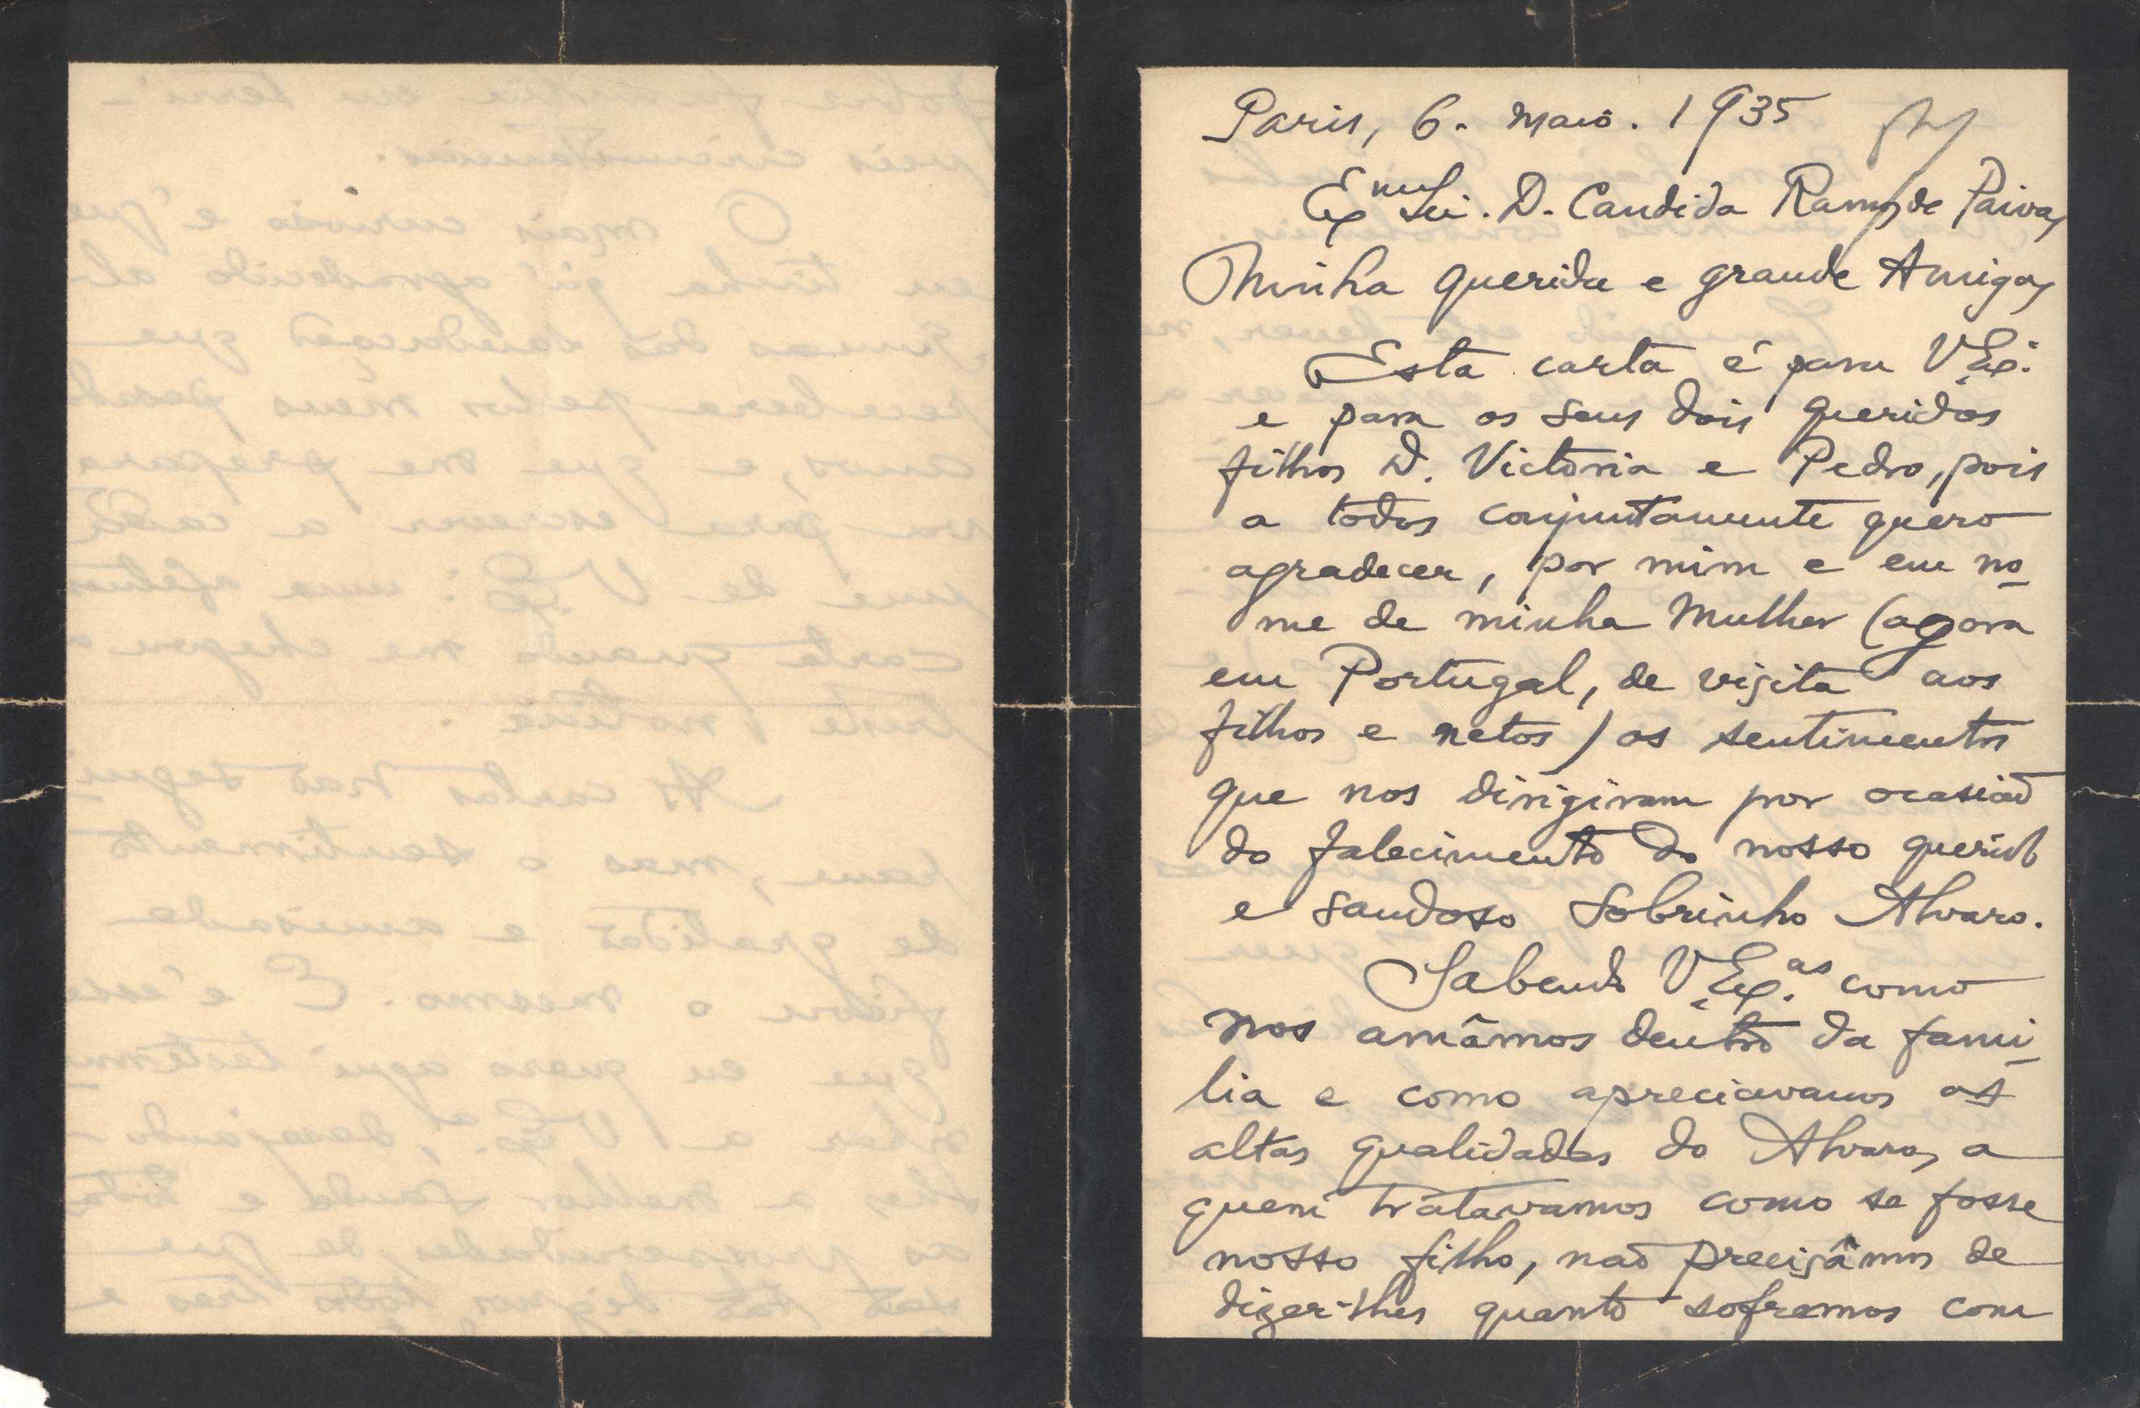 Paris, 6. Maio. 1935
Ex.ma Sr.ª D. Candida Ramos de Paiva,
Minha querida e grande Amiga,
Esta carta é para V. Ex.ª
e para os seus dois queridos
filhos D. Victoria e Pedro, pois
a todos conjuntamente quero
agradecer, por mim e em no-
me de minha Mulher (agora
em Portugal, de visita aos
filhos e netos) os sentimentos
que nos dirigiram por ocasião
do falecimento do nosso querido
e saudoso Sobrinho Alvaro.
Sabendo V. Ex.as como
nos amâmos dentro da fami-
lia e como apreciavamos as
altas qualidades do Alvaro, a
quem tratavamos como se fosse
nosso filho, não precisâmos de
dizer-lhes quanto sofremos com